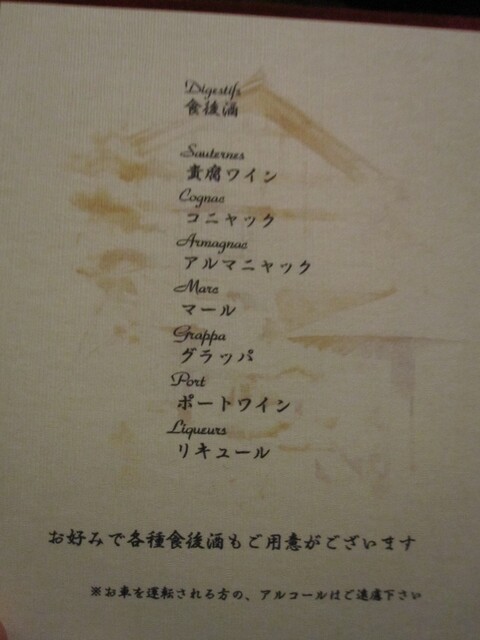 Digestifs
食後酒
Sauternes
貴腐ワイン
Cognac
コニャック
Armagnac
アルマニャック
Marc
マール
Grappa
グラッパ
Port
ポートワイン
Liqueurs
リキュール
お好みで各種食後酒もご用意がございます
※お車を運転される方の、アルコールはご遠慮下さい